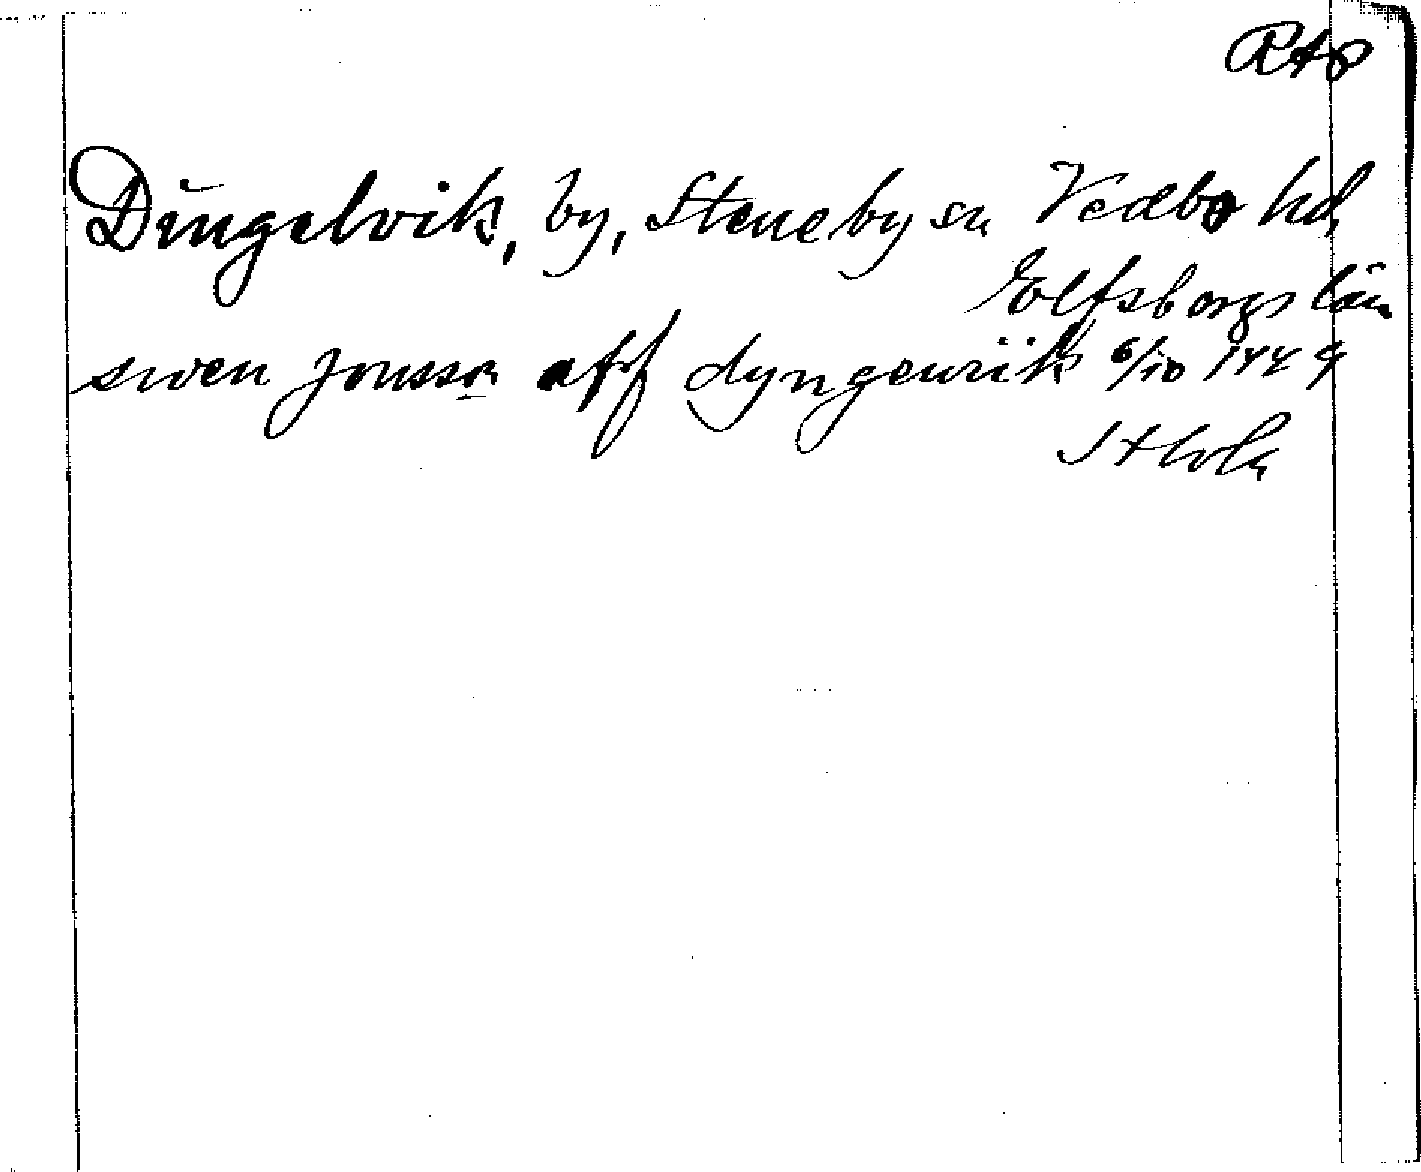 RAp
Dingelvik, by, Steneby sn Vedbo hd,
Elfsborgs län
swen Jonsson aff dyngewiik 6/10 1449
Sthlm